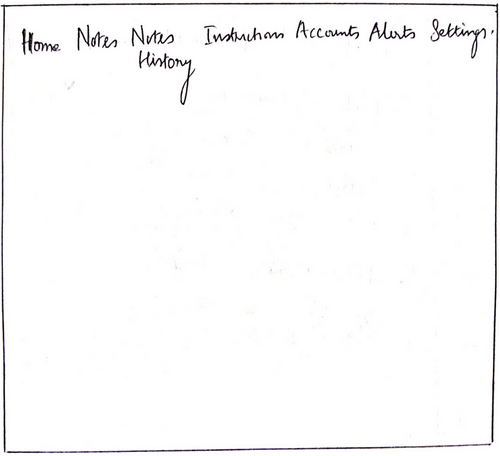 Home Notes Notes Instructions Accounts Alerts Settings.
History